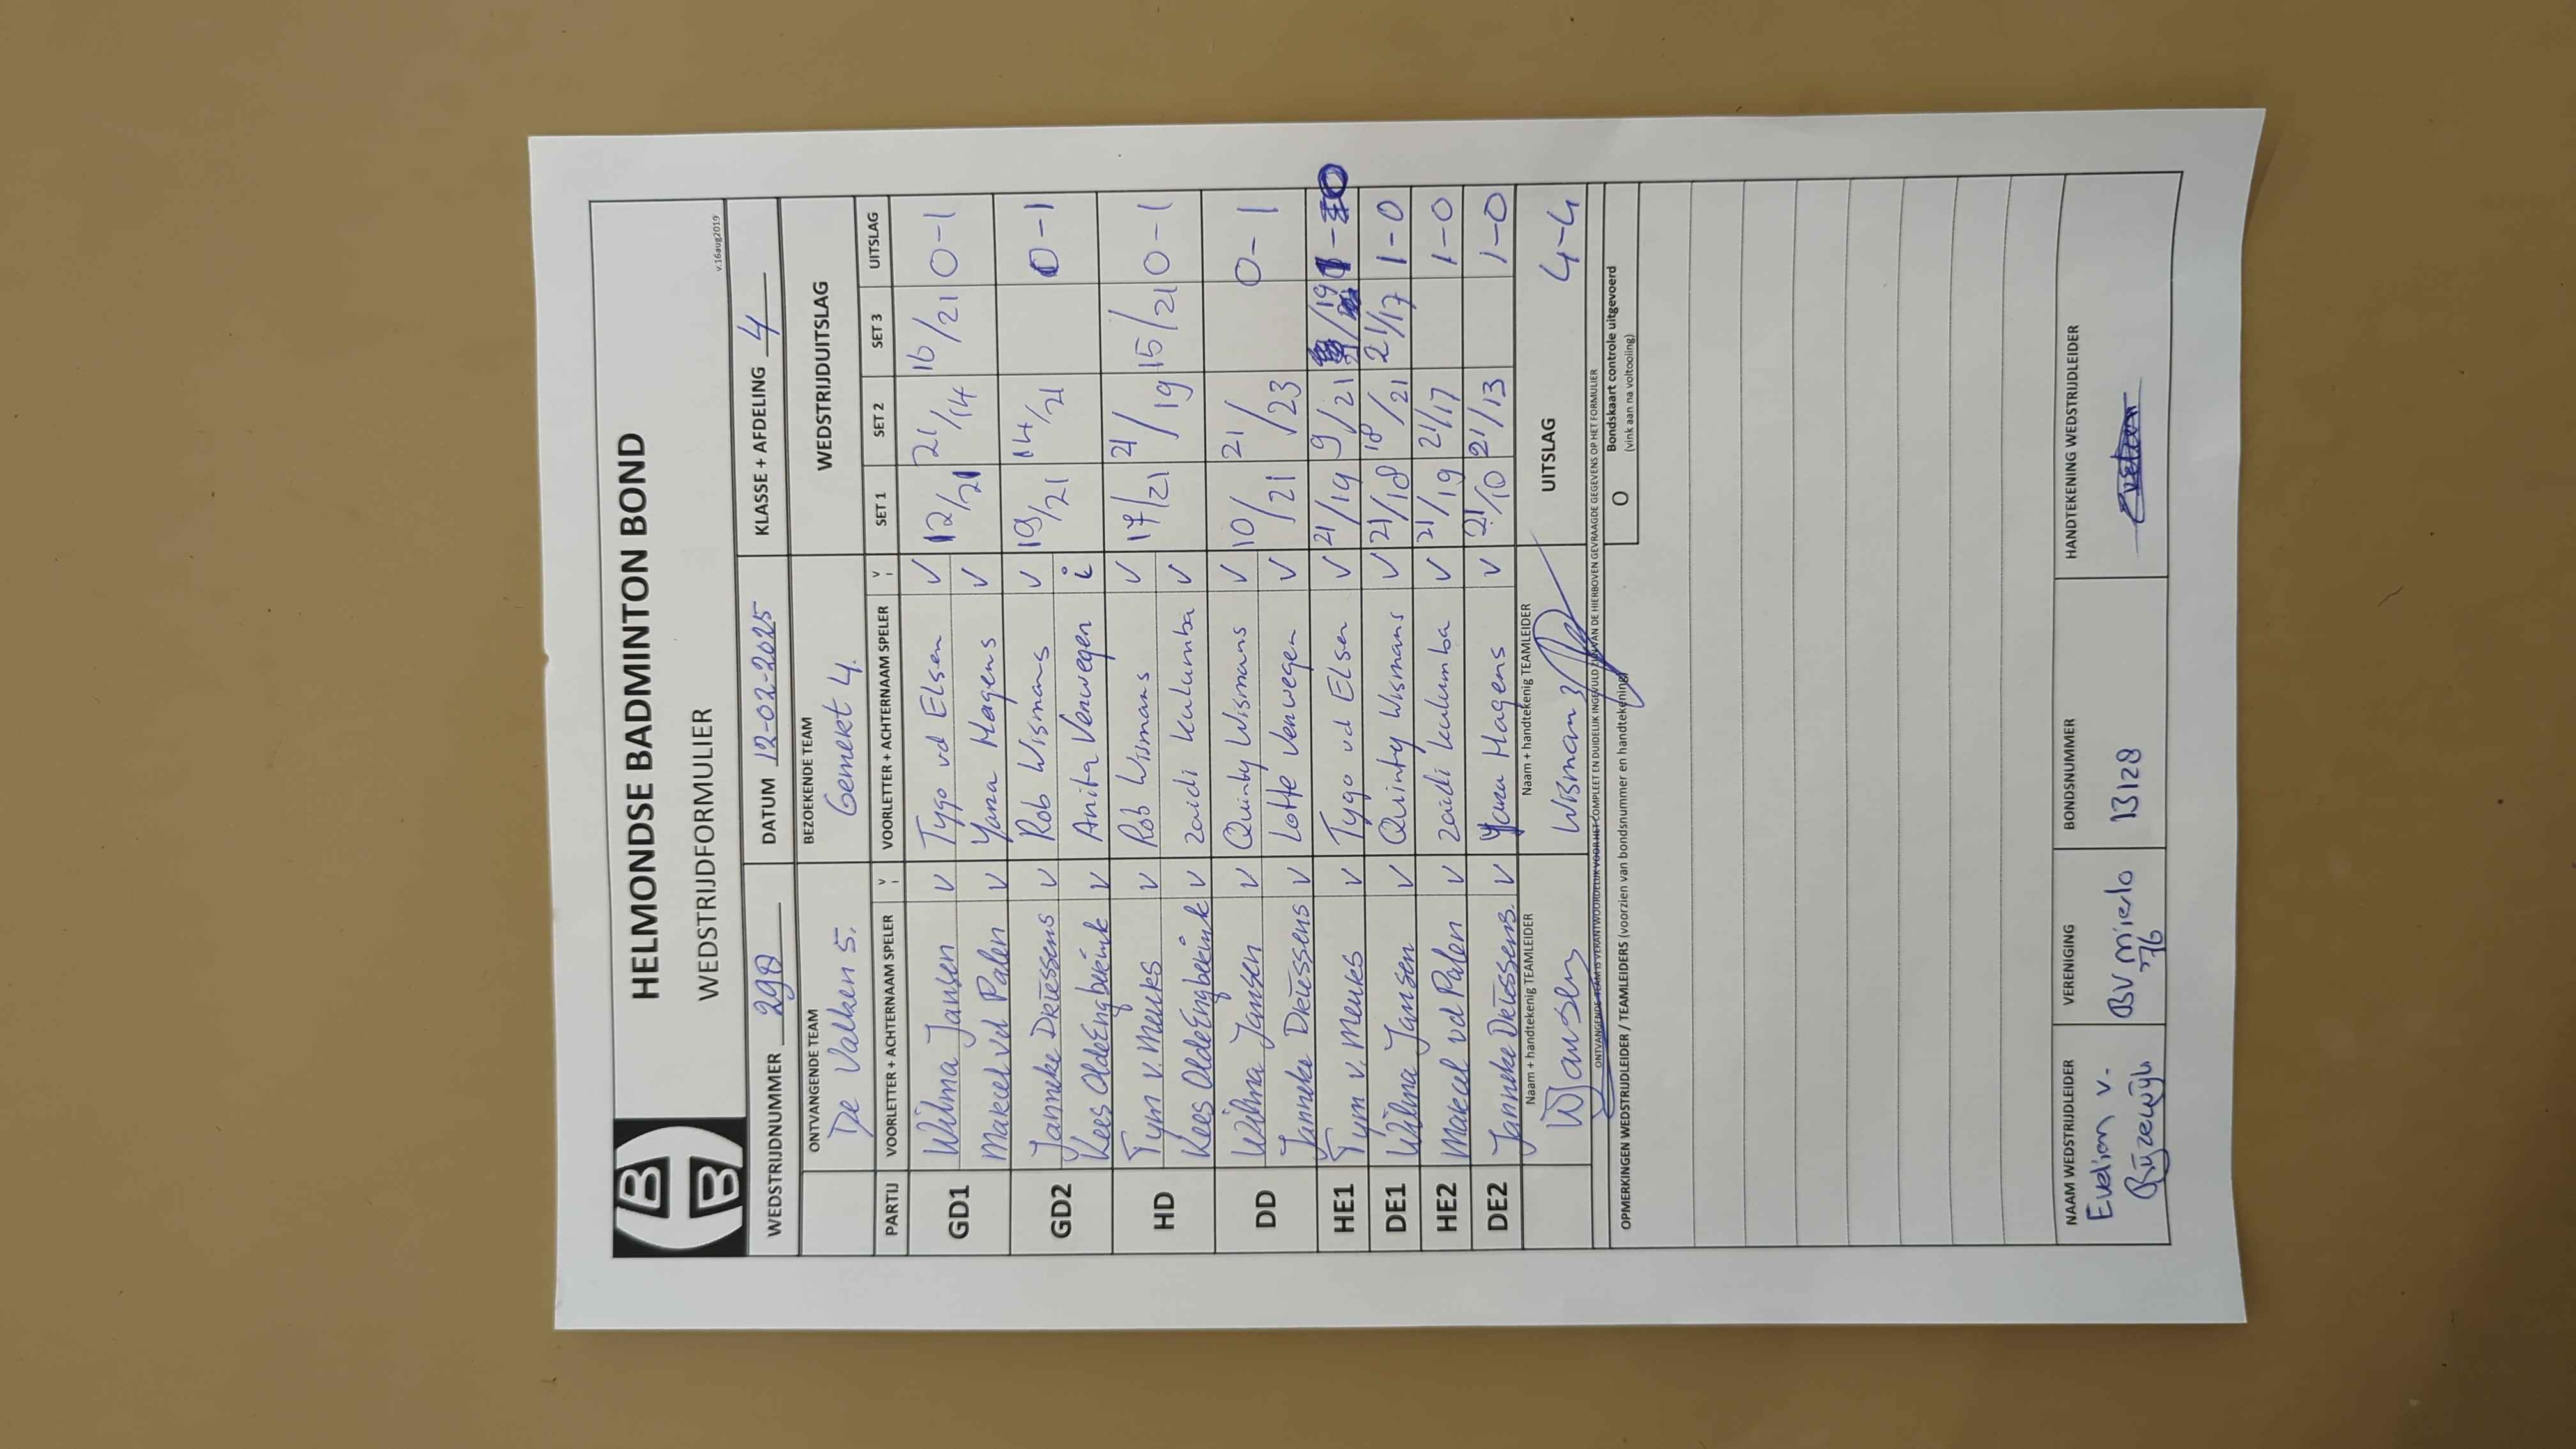 HELMONDSE BADMINTON BOND
WEDSTRIJDFORMULIER
v.16aug2019
WEDSTRIJDNUMMER 298 DATUM 12-02-2025 KLASSE + AFDELING 4
ONTVANGENDE TEAM BEZOEKENDE TEAM WEDSTRIJDUITSLAG
De Valken 5. Gemekt 4.
PARTIJ VOORLETTER + ACHTERNAAM SPELER V I VOORLETTER + ACHTERNAAM SPELER V I SET 1 SET 2 SET 3 UITSLAG
GD1 Wilma Jansen V Tygo vd Elsen V 12/21 21/14 16/21 0-1
Marcel vd Palen V Yana Hagens V
GD2 Janneke Driessens V Rob Wismans V 19/21 14/21 0-1
Kees OldeEngberink V Anita Verwegen i
HD Tym v. Meurs V Rob Wismans V 17/21 21/19 15/21 0-1
Kees OldeEngberink V Zaidi Kulumba V
DD Wilma Jansen V Quinty Wismans V 10/21 21/23 0-1
Janneke Driessens V Lotte Verwegen V
HE1 Tym v. Meurs V Tygo vd Elsen V 21/19 9/21 21/19 1-0
DE1 Wilma Jansen V Quinty Wismans V 21/18 18/21 21/17 1-0
HE2 Marcel vd Palen V Zaidi Kulumba V 21/19 21/17 1-0
DE2 Janneke Driessens. V Yana Hagens V 21/10 21/13 1-0
Naam + handtekenig TEAMLEIDER Naam + handtekenig TEAMLEIDER UITSLAG 4-4
WJansen Wismans
ONTVANGENDE TEAM IS VERANTWOORDELIJK VOOR HET COMPLEET EN DUIDELIJK INGEVULD ZIJN VAN DE HIERBOVEN GEVRAAGDE GEGEVENS OP HET FORMULIER
OPMERKINGEN WEDSTRIJDLEIDER / TEAMLEIDERS (voorzien van bondsnummer en handtekening) O Bondskaart controle uitgevoerd
(vink aan na voltooiing)
NAAM WEDSTRIJDLEIDER VERENIGING BONDSNUMMER HANDTEKENING WEDSTRIJDLEIDER
Evelien v. BV Mierlo 13128
Rijzewijk '76